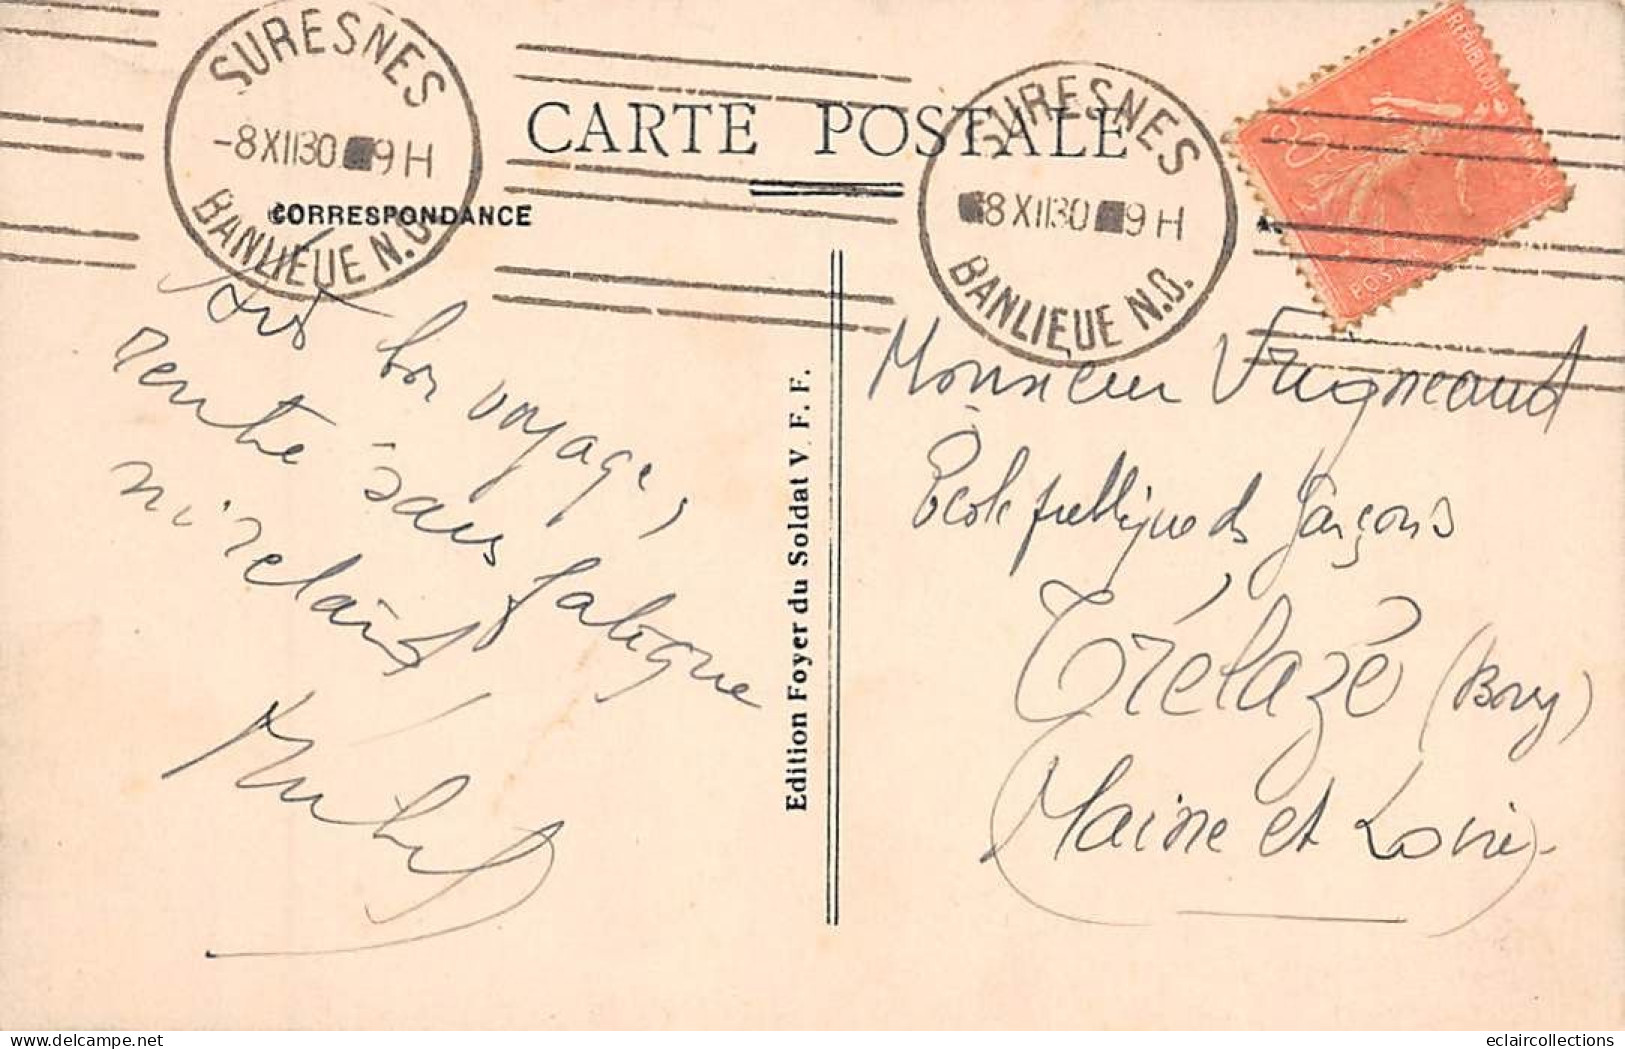 SURESNES
-8 XII 30 9 H
BANLIEUE N.O.
CARTE POSTALE
SURESNES
8 XII 30 9 H
BANLIEUE N.O.
RÉPUBLIQUE
50c
POSTES
CORRESPONDANCE
bon voyage,
rentré sans fatigue
ni retard
Edition Foyer du Soldat V. F. F.
Monsieur Frigneaud
Ecole publique de Garçons
Trélazé (Bourg)
Maine et Loire
delcampe.net
eclaircollections